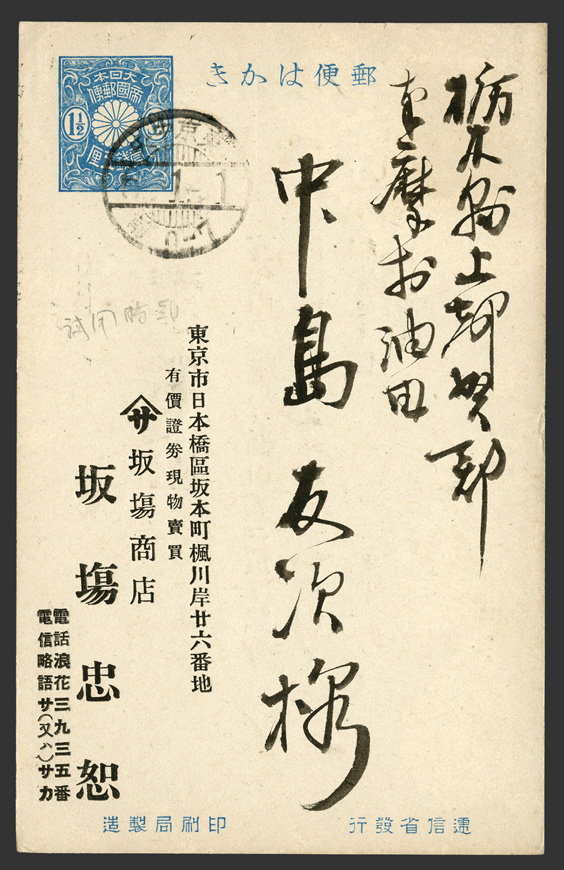 郵便はかき
大日本
帝國郵便
1½
栃木縣上都賀郡
南摩村油田
中島友次様
東京市日本橋區坂本町楓川岸廿六番地
有價證券現物賣買
サ 坂塲商店
坂塲忠恕
電話浪花三九三五番
電信略語サ(又ハ)サカ
京
1-1
試用時
遞信省發行
印刷局製造